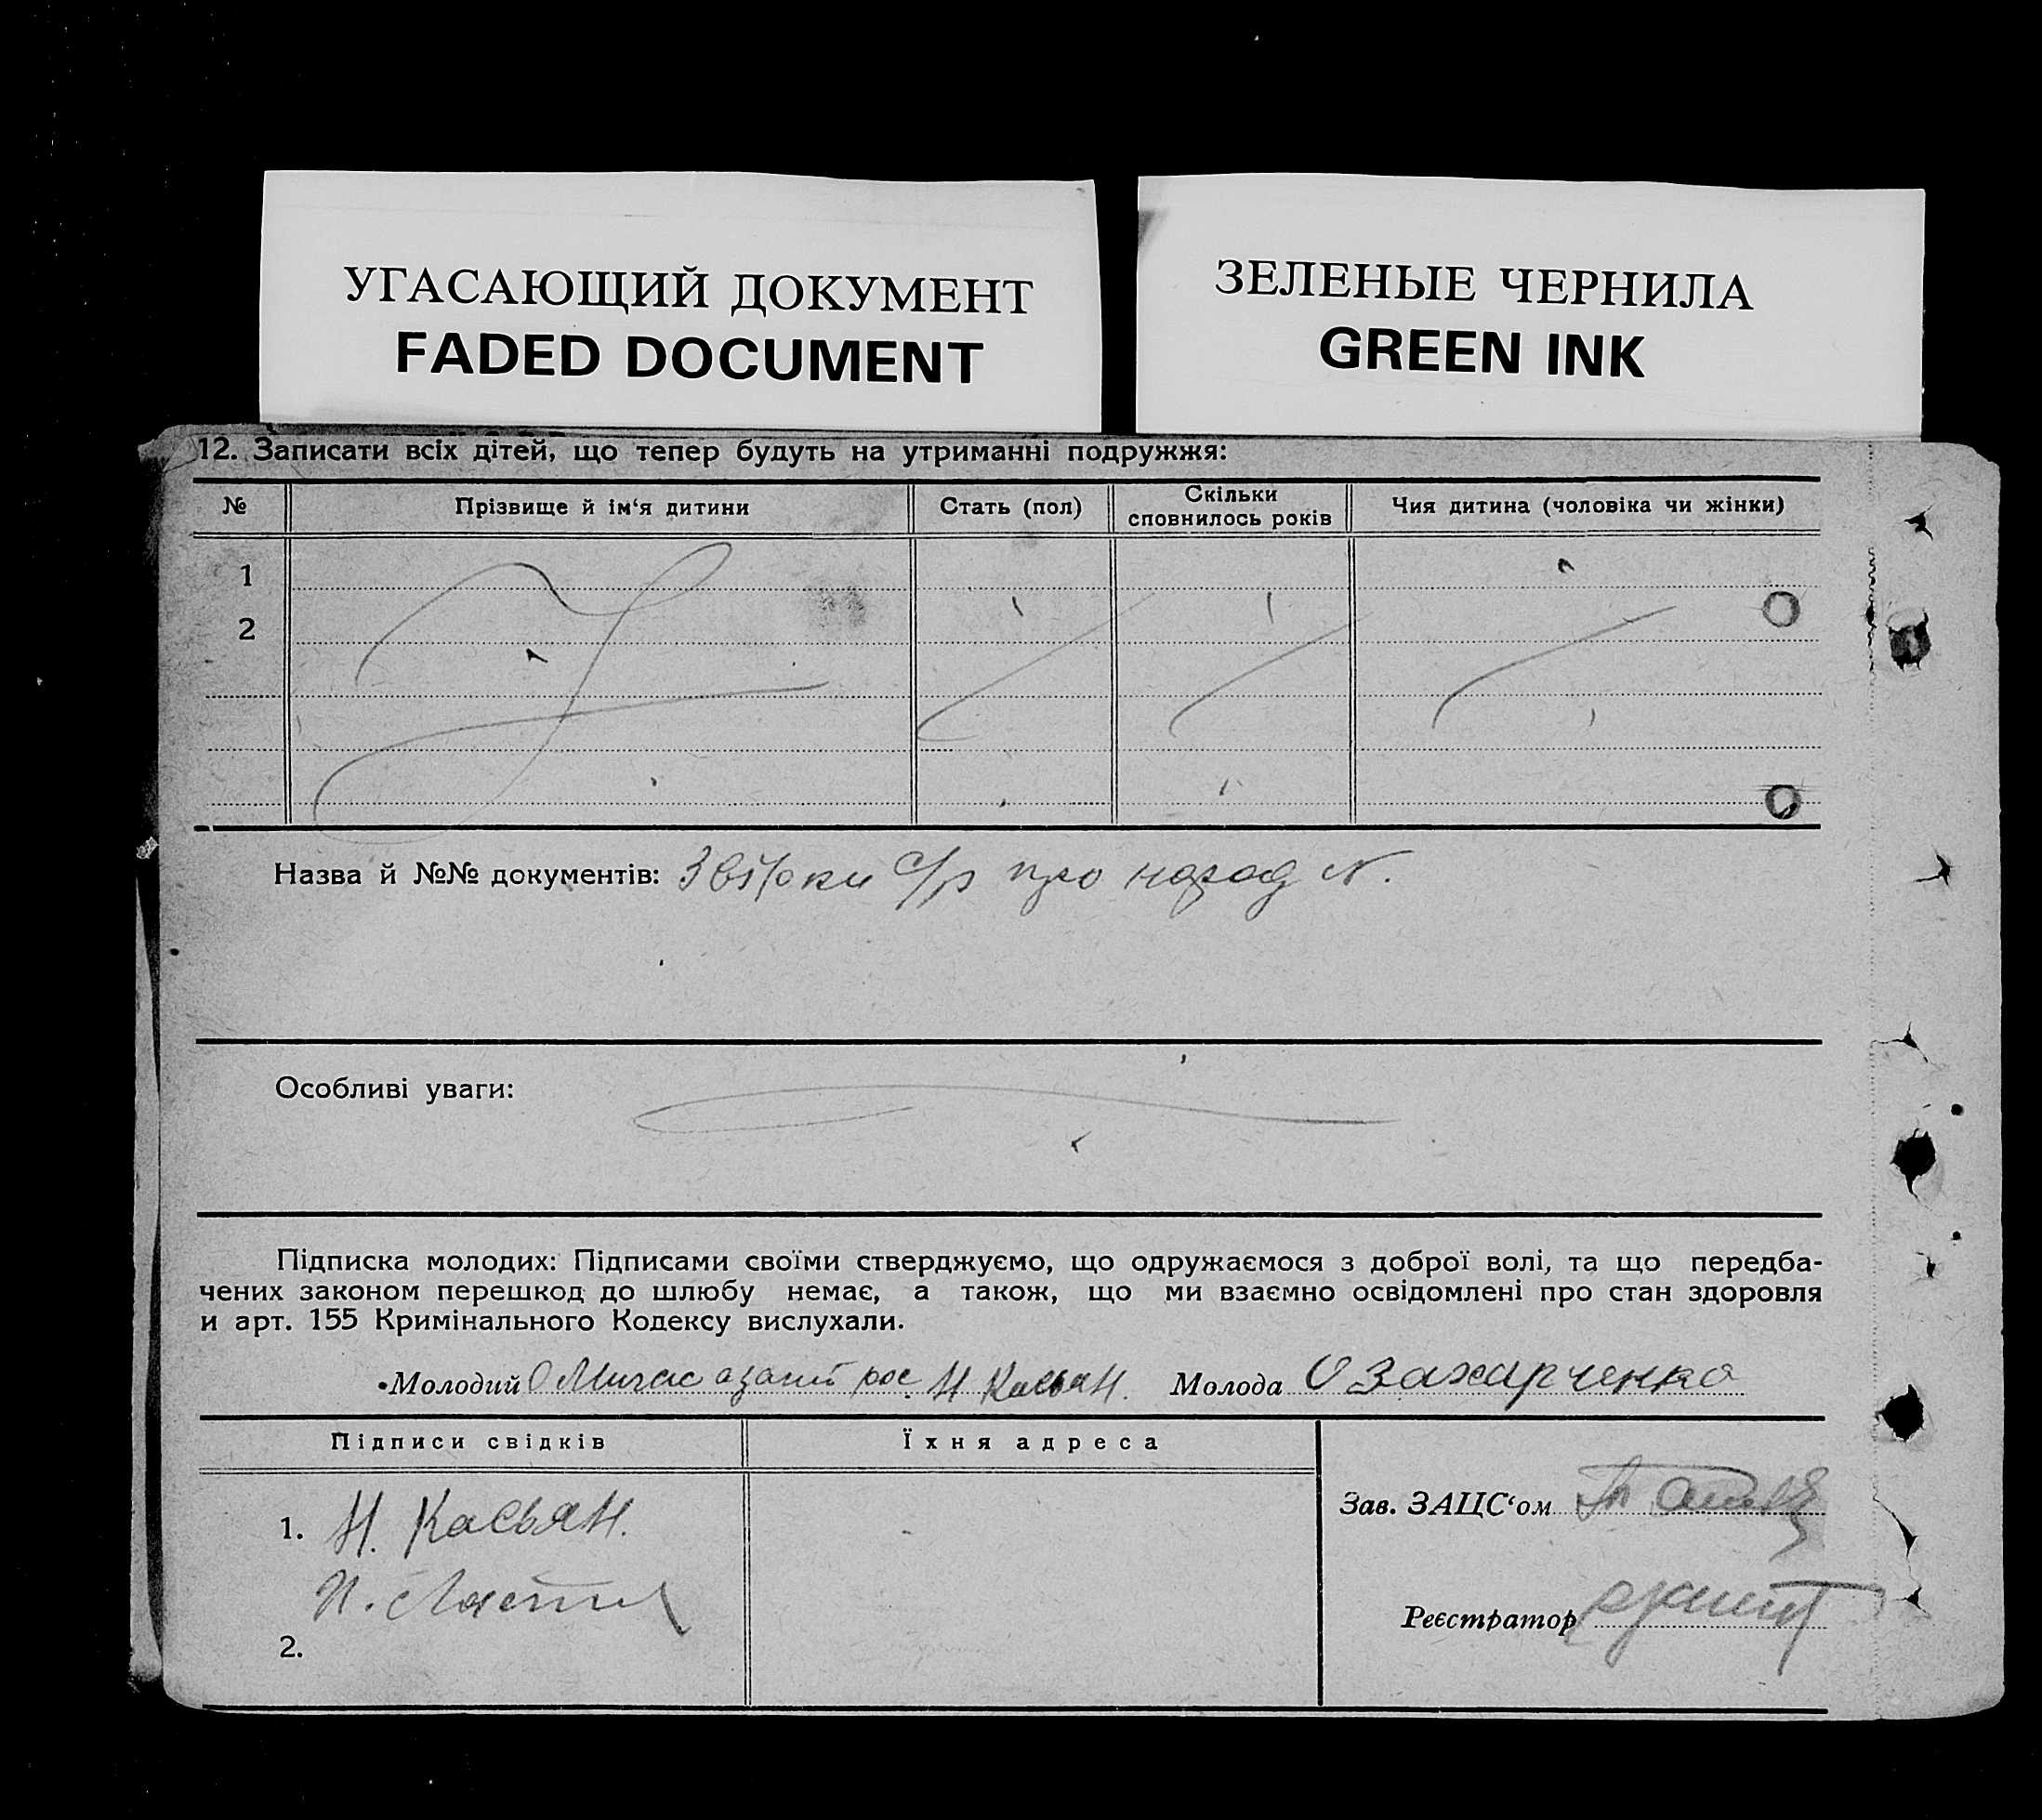 УГАСАЮЩИЙ ДОКУМЕНТ
FADED DOCUMENT
ЗЕЛЕНЫЕ ЧЕРНИЛА
GREEN INK
12. Записати всіх дітей, що тепер будуть на утриманні подружжя:
№ Прізвище й ім‘я дитини Стать (пол) Скільки сповнилось років Чия дитина (чоловіка чи жінки)
1
2
Назва й №№ документів: Звідки с/р про народ N.
Особливі уваги:
Підписка молодих: Підписами своїми стверджуємо, що одружаємося з доброї волі, та що передба-
чених законом перешкод до шлюбу немає, а також, що ми взаємно освідомлені про стан здоровля
и арт. 155 Кримінального Кодексу вислухали.
Молодий Н Касьян. Молода О Захарченко
Підписи свідків Їхня адреса
1. Н. Касьян.
2.
Зав. ЗАЦС‘ом
Реєстратор